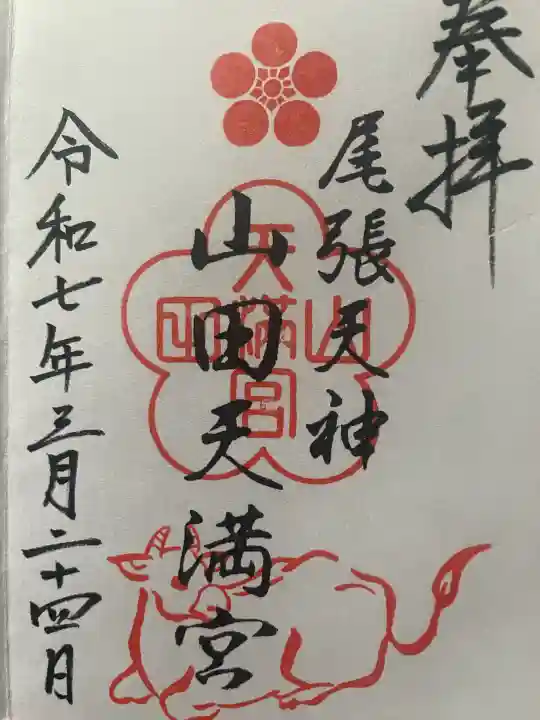 奉拝
尾張天神
山田天満宮
令和七年三月二十四日
天満宮
山田